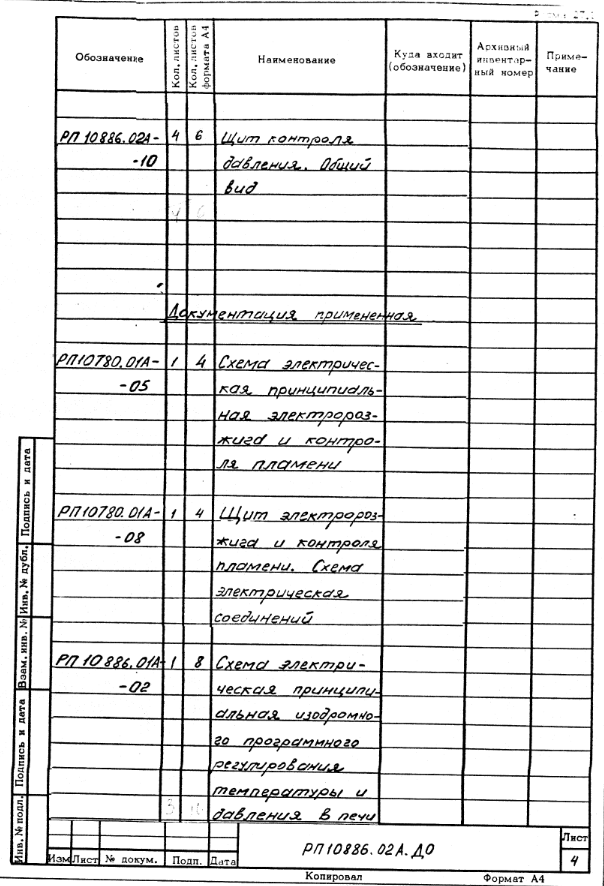 Обозначение
Кол. листов
Кол. листов формата А4
Наименование
Куда входит (обозначение)
Архивный инвентарный номер
Примечание
РП 10886.02А- 4 6 Щит контроля
-10 давления. Общий
вид
Документация примененная
РП10780.01А- 1 4 Схема электричес-
-05 кая принципиаль-
ная электророз-
жига и контро-
ля пламени
РП10780.01А- 1 4 Щит электророз-
-08 жига и контроля
пламени. Схема
электрическая
соединений
РП 10886.01А- 1 8 Схема электри-
-02 ческая принципи-
альная изодромно-
го программного
регулирования
температуры и
давления в печи
Инв. № подл. Подпись и дата Взам. инв. № Инв. № дубл. Подпись и дата
РП10886.02А.ДО
Лист
4
Изм Лист № докум. Подп. Дата
Копировал Формат А4